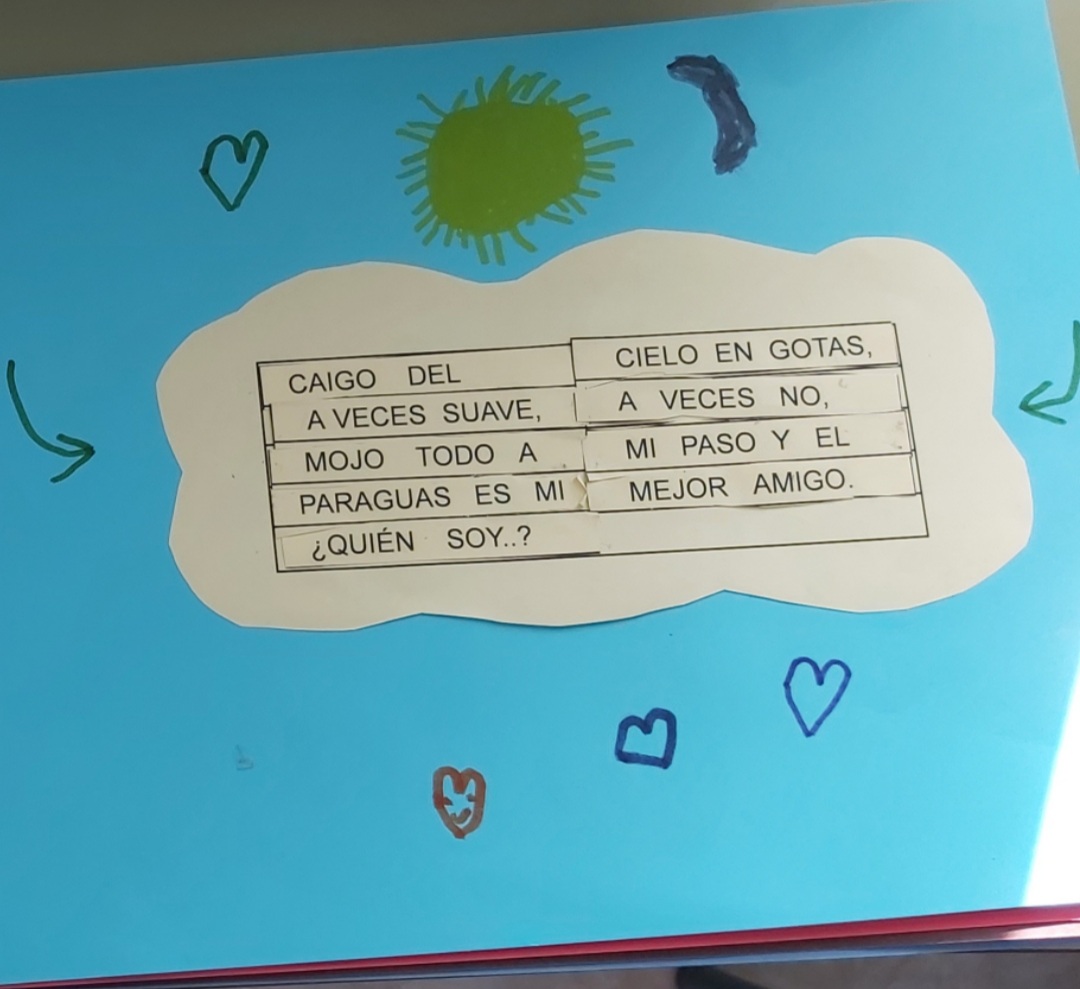 CAIGO DEL CIELO EN GOTAS,
A VECES SUAVE, A VECES NO,
MOJO TODO A MI PASO Y EL
PARAGUAS ES MI MEJOR AMIGO.
¿QUIÉN SOY..?